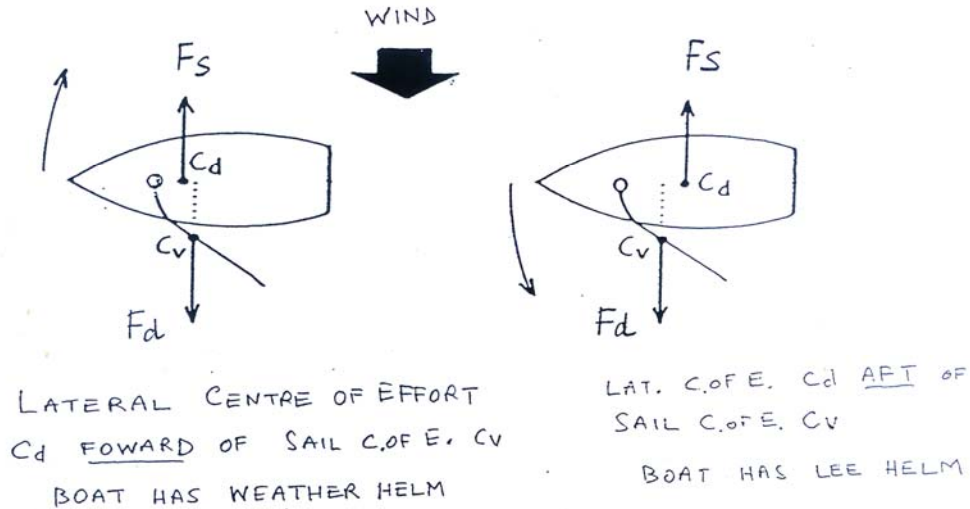 WIND
Fs
Cd
Cv
Fd
Fs
Cd
Cv
Fd
LATERAL CENTRE OF EFFORT
Cd FOWARD OF SAIL C.OF E. Cv
BOAT HAS WEATHER HELM
LAT. C.OF E. Cd AFT OF
SAIL C.OF E. Cv
BOAT HAS LEE HELM